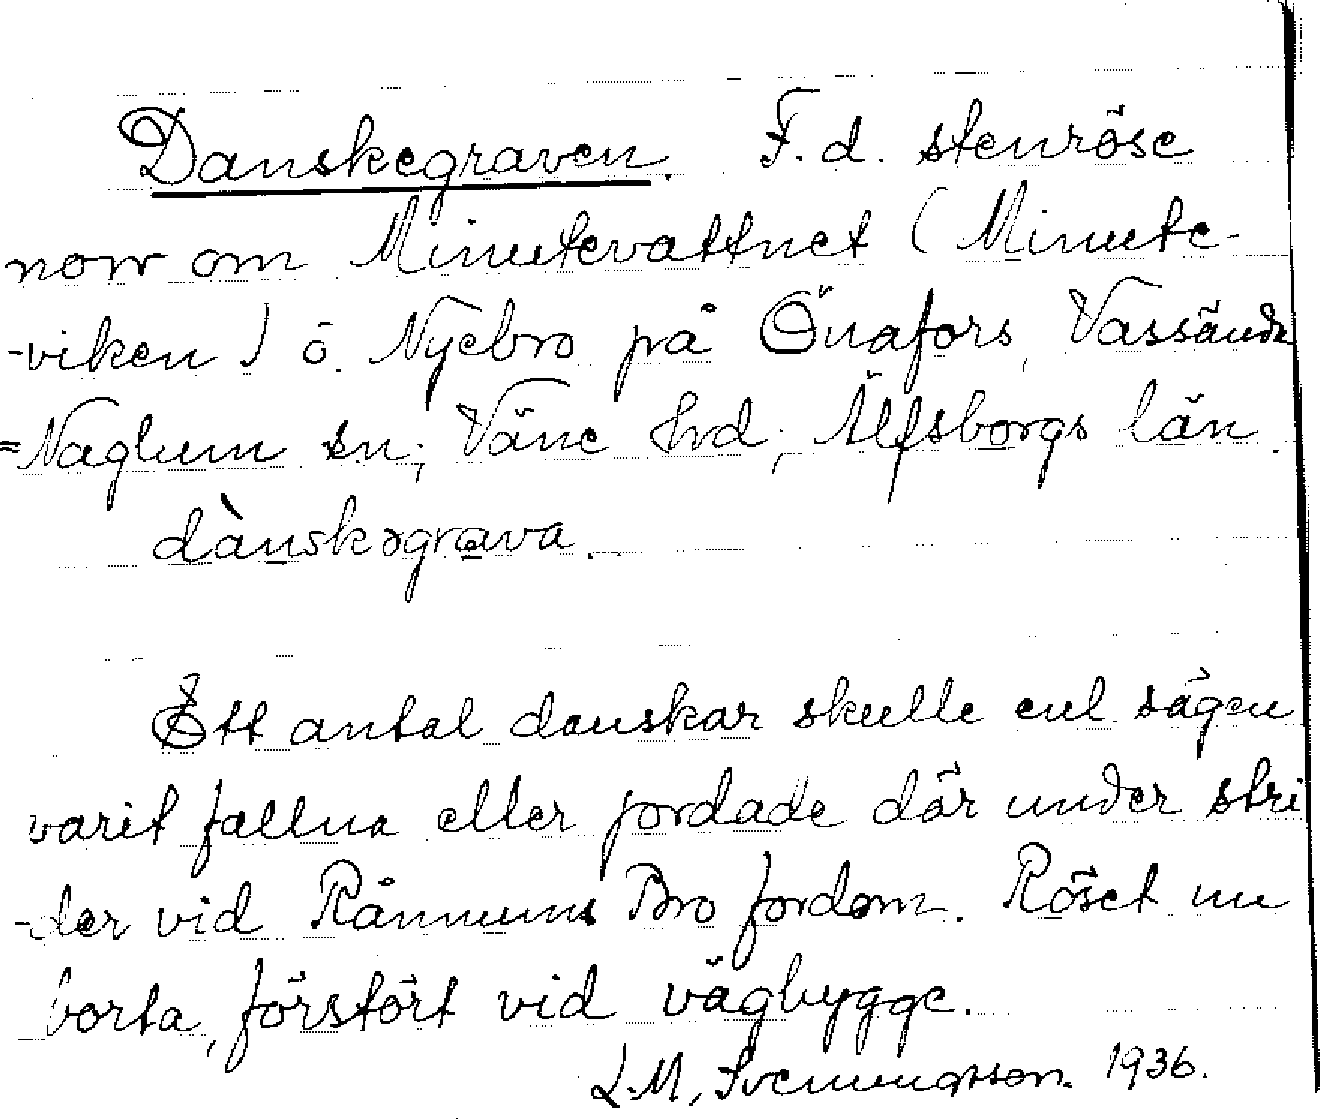 Danskegraven. F.d. stenröse
norr om Minutevattnet (Minute-
-viken) ö. Nyebro på Önafors, Vassända
=Naglum sn; Väne hd; Älfsborgs län.
dànskəgrava.
Ett antal danskar skulle enl sägen
varit fallna eller jordade där under stri
-der vid Rånnums Bro fordom. Röset nu
borta, förstört vid vägbygge.
L.M. Svenungsson. 1936.